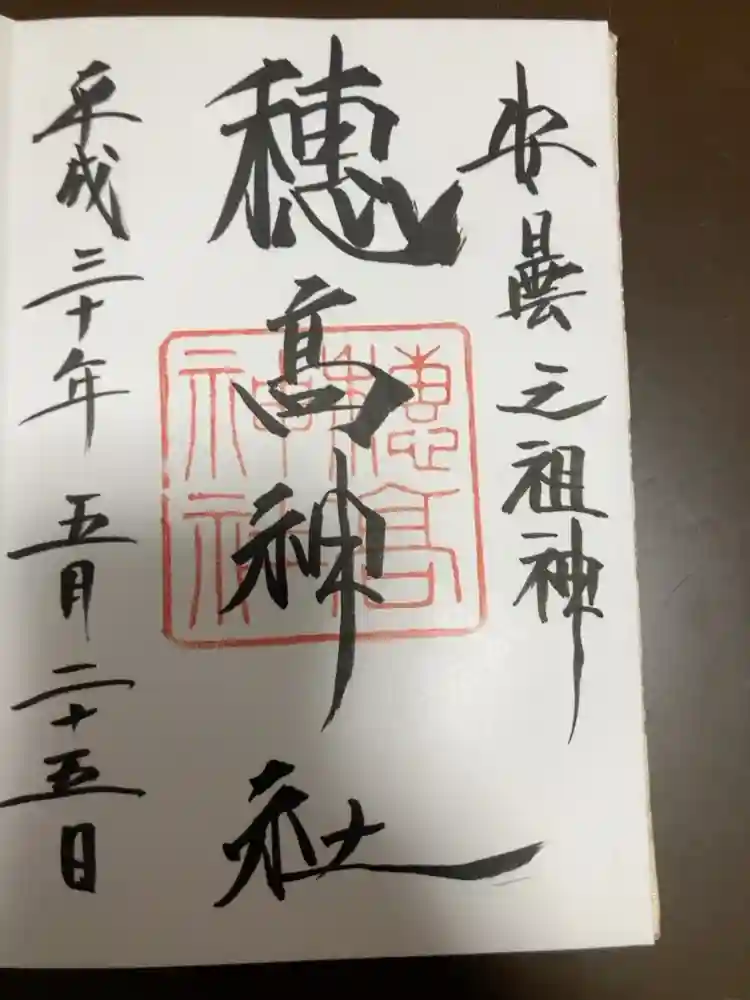 安曇之祖神
穂高神社
穂高神社
平成三十年五月二十五日